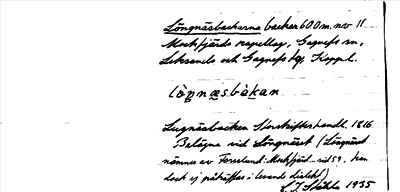 Löngnäsbackarna backar 600 m. nv ll
Mockfjärds kapellag, Gagnefs sn,
Leksands och Gagnefs tg, Koppl.
lò̀ŋnæsbàkan
Lugnäsbacken Storskifteshandl. 1816
Belägna vid Löngnäset (Löngnäset
nämnes av Forslund: Mockfjärd s. 59, men
dock ej påträffas i levande dialekt)
Ståhle 1935